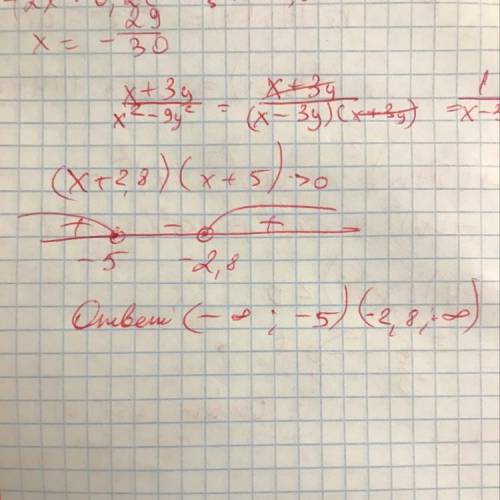 x = - 29/30
x + 3y / x² - 9y² = x + 3y / (x - 3y)(x + 3y) = 1 / x - 3
(x + 2,8)(x + 5) > 0
+ - +
-5 -2,8
Ответ (-∞ ; -5) (-2,8 ; +∞)